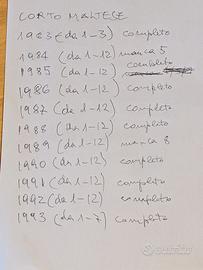 CORTO MALTESE
1983 (da 1-3) completo
1984 (da 1-12) manca 5
1985 (da 1-12) completo
1986 (da 1-12) completo
1987 (da 1-12) completo
1988 (da 1-12) completo
1989 (da 1-12) manca 8
1990 (da 1-12) completo
1991 (da 1-12) completo
1992 (da 1-12) completo
1993 (da 1-7) completo
subito